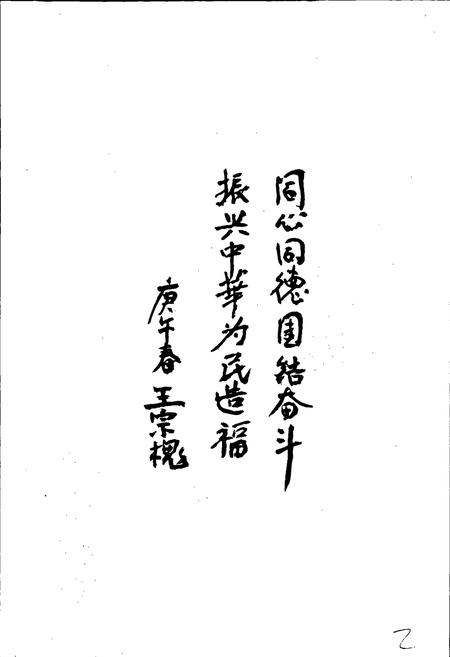 同心同德团结奋斗
振兴中華为民造福
庚午春 王宗槐
乙